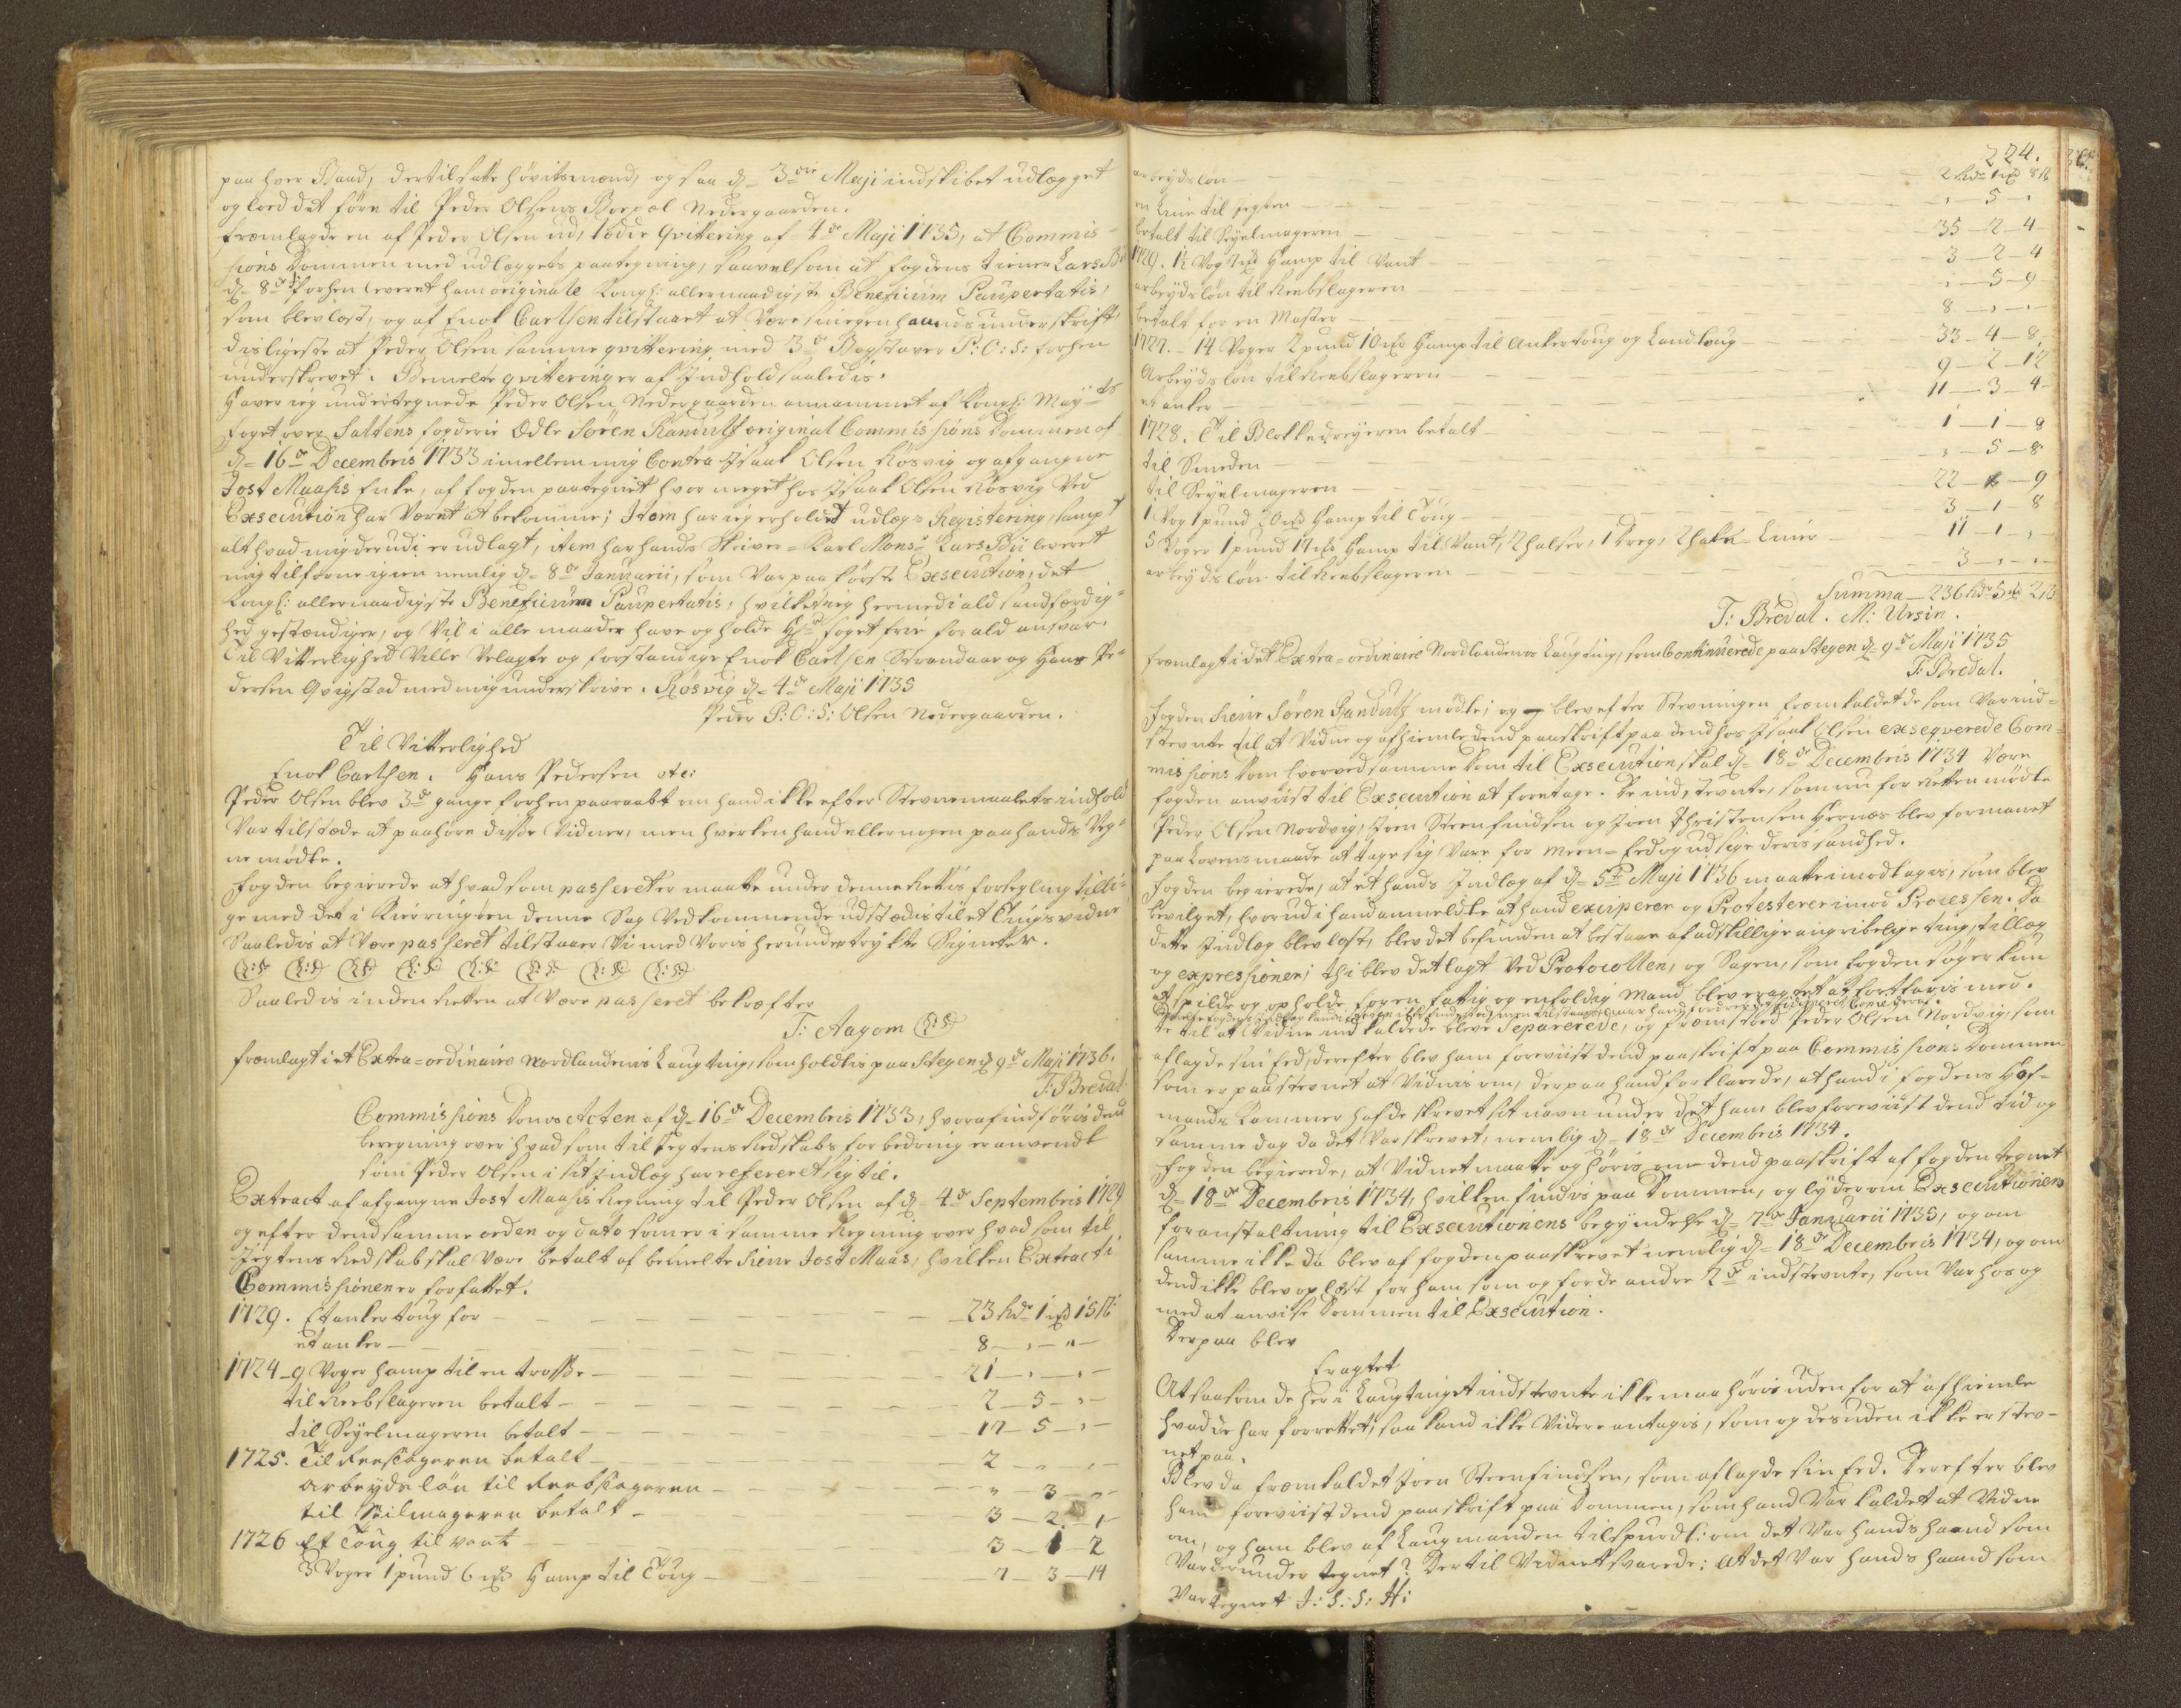 paa hver Baad, dertil satte høvitsmænd, og saa d= 3die Maji indskibet udlægget
og loed det føre til Peder Olsens Boepæl Nedergaarden.
fremlagde en af Peder Olsen ud, Quittering af 4de Maji 1735, at Commis-
sions Dommen med udlæggets paategning, saavelsom at fogdens tiener Lars Bii
d= 8de forhen leveret ham originale Kongl: allernaadigste Beneficium Paupertatis,
som blev læst, og af Enok Carlsen tilstaaet at være sin egen haands underskrift
disligeste at Peder Olsen samme qvittering med 3de Bogstaver P: O: S: forhen
underskrevet. Bemelte qvittering er af Indhold saaledis.
Haver ieg undertegnede Peder Olsen Nedergaarden annammet af Kongl: May:ts
foget over Saltens fogderie Ædle Søren Randulf original Commissions Dommen af
d= 16de Decembris 1733 imellem mig Contra Isaak Olsen Røsvig og afgangne
Jost Maasis Enke, af fogden paategnet hvor meget hos Isaak Olsen Røsvig ved
Exsecution har været at bekomme; Item har ieg erholdet udlægs Registering, sampt
alt hvad mig derudi er udlagt, item har hands Skriver-Karl Mons: Lars Bii leveret
mig tilforne igien nemlig d= 8de Januarii, som var paa første Exsecution, det
Kongl: allernaadigste Beneficium Paupertatis, hvilket ieg hermed i ald sandfærdig-
hed gestændiger, og vil i alle maader have og holde Hr: foget frie for ald ansvar.
Til Vitterlighed ville velagte og forstandige Enok Carlsen Strandaae og Hans Pe-
dersen Qvigstad med mig underskrive. Røsvig d= 4de Maji 1735
Peder P: O: S: Olsen Nedergaarden.
Til Vitterlighed
Enok Carlsen. Hans Pedersen etc:
Peder Olsen blev 3de gange forhen paaraabt om hand ikke efter Stevnemaalets indhold
var tilstæde at paahøre disse Vidner, men hverken hand eller nogen paa hands veg-
ne mødte.
Fogden begierede at hvad som passeret er maatte under denne Rettis forsegling tilli-
ge med det i Kierringøen denne Sag vedkommende udstædis til et Tingsvidne
Saaledis at være passeret tilstaaer vi med voris herundertrykte Signeter.
(L:S) (L:S) (L:S) (L:S) (L:S) (L:S) (L:S) (L:S)
Saaledis inden Retten at være passeret bekræfter
T: Aagom (L:S)
fremlagt i et Extra=ordinaire Nordlandenis Laugting, som holdtis paa Stegen d= 9de Maji 1736.
T: Bredal
Commissions Doms Acten af d= 16de Decembris 1733, hvoraf indføris den
beregning over hvad som til Jegtens Redskabs forbedring er anvendt
som Peder Olsen i sit Indlæg har refereret sig til.
Extract af afgangne Jost Maasis Regning til Peder Olsen af d= 4de Septembris 1729
og efter dend samme orden og dato som er i samme Regning over hvad som til
Jegtens Redskab skal være betalt af bemelte Sieur Jost Maas, hvilken Extract i
Commissionen er forfattet.
1729. Et ankertoug for — 23 Rdr 1 mk 15 s
et anker — 8 — " — "
1724 - 9 Voger hamp til en trosse — 21 — " — "
til Reebslageren betalt — 2 — 5 — "
til Seyelmageren betalt — 17 — 5 — "
1725. Til Reebslageren betalt — 2 — " — "
arbeydsløn til Reebslageren — " — 3 — "
til Seilmageren betalt — 3 — 2 — 1
1726 Et Toug til vant — 3 — 1 — 2
3 Voger 1 pund 6 mk Hamp til Toug — 7 — 3 — 14
224.
arbeydsløn — 2 Rdr 1 mk 8 s
en Liine til jegten — " — 5 — "
betalt til Seyelmageren — 35 — 2 — 4
1729. 1½ Vog 7 mk Hamp til vant — 3 — 2 — 4
arbeydsløn til Reebslageren — " — 5 — 9
betalt for en Master — 8 — " — "
1727. - 14 Voger 2 pund 10 mk Hamp til Ankertoug og Landtoug — 33 — 4 — 8
Arbeydsløn til Reebslageren — 9 — 2 — 12
et anker — 11 — 3 — 4
1728. Til Blokkedreyeren betalt — 1 — 1 — 8
til Smeden — " — 5 — 8
til Seyelmageren — 22 — — 9
1 Vog 1 pund 20 mk Hamp til Toug — 3 — 1 — 8
5 Voger 1 pund 17 mk Hamp til Vant, 2 halser, 1 dreg, 2 Liner — 11 — 1 — "
arbeydsløn til Reebslageren — 3 — " — "
Summa — 236 Rdr 5 mk 2 s
T: Bredal. M: Ursin.
fremlagt i det Extra=ordinaire Nordlandenes Laugting, som Continuerede paa Stegen d= 9de Maji 1735
T: Bredal.
Fogden Sieur Søren Randulf mødte; og blev efter Stevningen fremkaldet de som var ind-
stevnte til at vidne og afhiemle dend paaskrift paa dend hos Isaak Olsen exseqverede Com-
missions Dom hvorved samme Dom til Exsecution skal d= 18de Decembris 1734 være
fogden anviist til Exsecution at foretage. De indstevnte, som nu for Retten mødte
Peder Olsen Nordvig, Joen Steenfindsen og Joen Christensen Hernæs blev formanet
paa Lovens maade at tage sig vare for Meen-Eed og udsige deris sandhed.
Fogden begierede, at et hands Indlæg af d= 5te Maji 1736 maatte imodtagis, som blev
bevilget, hvorudi hand anmeldte at hand exciperer og Protesterer imod Processen. Da
dette Indlæg blev læst, blev det befunden at bestaae af adskillige angribelige ting, tillæg
og expressioner; thi blev det lagt ved Protocollen, og Sagen, som fogden søger kun
at spilde og opholde for en fattig og enfoldig Mand, blev eragtet at fortfaris med.
te til at vidne indkaldede bleve Separerede, og fremstoed Peder Olsen Nordvig, som
aflagde sin Eed, derefter blev ham foreviist dend paaskrift paa Commissions Dommen
som er paastevnet at vidnis om, derpaa hand forklarede, at hand i fogdens Hof-
mands Kammer hafde skrevet sit navn under det ham blev foreviist dend tid og
samme dag da det var skrevet, nemlig d= 18de Decembris 1734.
Fogden begierede, at Vidnet maatte og høris om dend paaskrift af fogden tegnet
d= 18de Decembris 1734, hvilken findis paa Dommen, og lyder om Exsecutionens
foranstaltning til Exsecutionens begyndelse d= 7de Januarii 1735, og om
samme ikke da blev af fogden paaskrevet nemlig d= 18de Decembris 1734, og om
dend ikke blev oplæst for ham som og for de andre 2de indstevnte, som var hos og
med at anvise Dommen til Exsecution.
Derpaa blev
Eragtet
At saasom de her i Laugtinget indstevnte ikke maa høris uden for at afhiemle
hvad de har forrettet, saa kand ikke videre antagis, som og desuden ikke er stev-
net paa.
Blev da fremkaldet Joen Steenfindsen, som aflagde sin Eed. Derefter blev
ham foreviist dend paaskrift paa Dommen, som hand var kaldet at vidne
om, og ham blev af Laugmanden tilspurdt: om det var hands haand som
var derunder tegnet? Dertil Vidnet svarede: At det var hands haand som
var tegnet J: S: S: H: